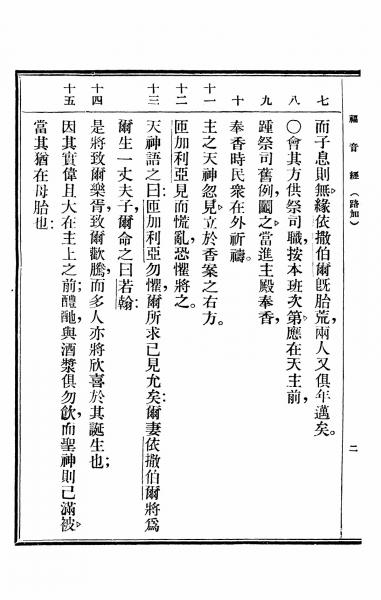 福音經（路加）
二
七 而子息則無緣依撒伯爾旣胎荒，兩人又俱年邁矣。
八 〇會其方供祭司職，按本班次第應在天主前，
九 踵祭司舊例，鬮之當進主殿奉香，
十 奉香時民衆在外祈禱。
十一 主之天神忽見立於香案之右方。
十二 匝加利亞見而慌亂恐懼將之。
十三 天神語之曰：匝加利亞勿懼，爾所求已見允矣：爾妻依撒伯爾將爲
爾生一丈夫子，爾命之曰若翰：
十四 是將致爾樂胥，致爾歡騰，而多人亦將欣喜於其誕生也；
十五 因其實偉且大在主上之前；醴酏與酒漿俱勿飮，而聖神則已滿被
當其猶在母胎也：